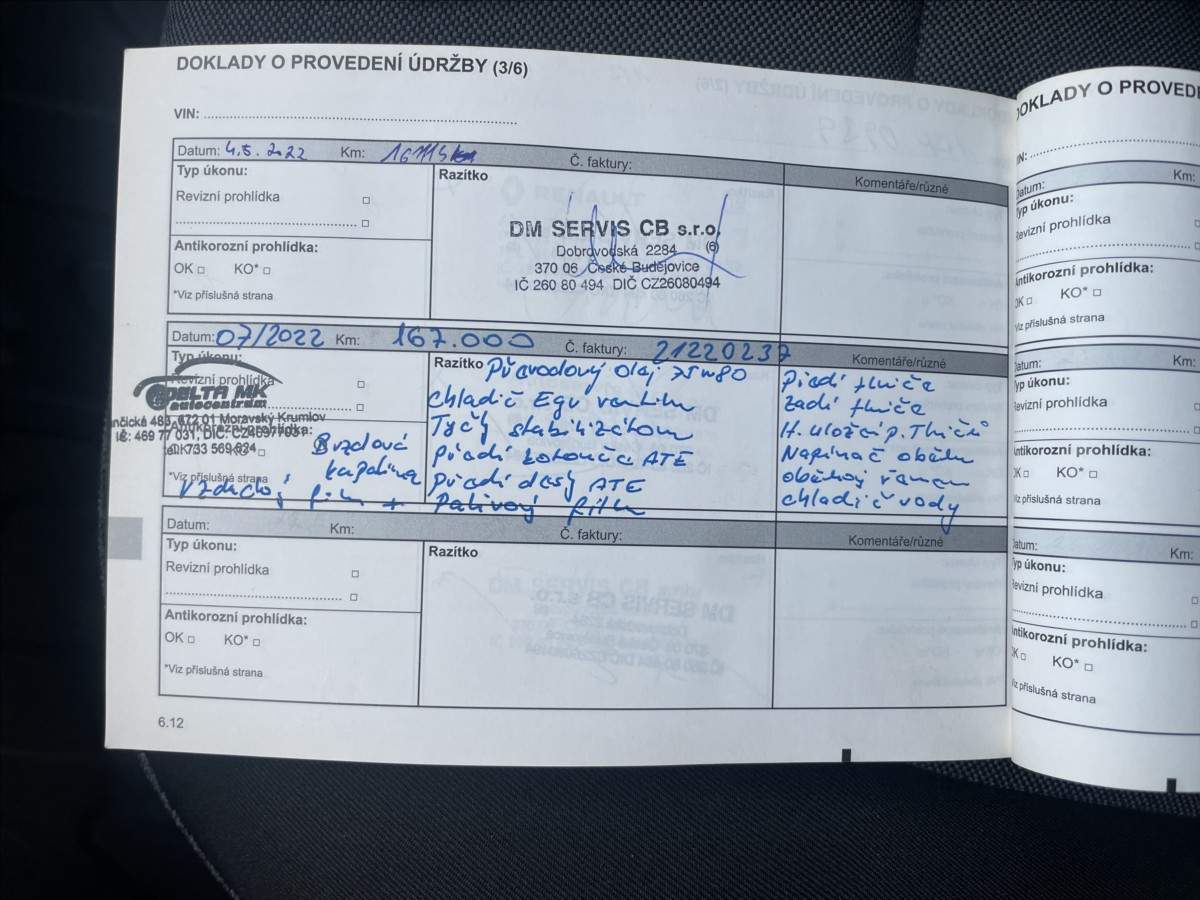 DOKLADY O PROVEDENÍ ÚDRŽBY (3/6)
VIN:
Datum: 4.5.2022 Km: Č. faktury:
Komentáře/různé
Typ úkonu:
Revizní prohlídka
Antikorozní prohlídka:
OK KO*
*Viz příslušná strana
Razítko
DM SERVIS CB s.r.o.
(6)
Dobrovodská 2284
370 06 České Budějovice
IČ 260 80 494 DIČ CZ26080494
Datum: 07/2022 Km: 167.000 Č. faktury: 21220237
Komentáře/různé
Typ úkonu:
Revizní prohlídka
DELTA MK
autocentrum
672 01 Moravský Krumlov
Antikorozní prohlídka:
*Viz příslušná strana
Brzdová
kapalina
Razítko Převodový olej 75W80
chladič Egv ventilu
Tyčky stabilizátorů
Přední kotouče ATE
Přední desky ATE
Palivový filtr
Přední tlumiče
Zadní tlumiče
H. uložení p. Tlumičů
Napínač
chladič vody
Datum: Km: Č. faktury:
Komentáře/různé
Typ úkonu:
Revizní prohlídka
Antikorozní prohlídka:
OK KO*
*Viz příslušná strana
Razítko
6.12
DOKLADY O PROVEDE
Datum: Km:
Typ úkonu:
Revizní prohlídka
Antikorozní prohlídka:
KO*
Viz příslušná strana
Datum: Km:
Typ úkonu:
Revizní prohlídka
Antikorozní prohlídka:
KO*
Viz příslušná strana
Datum: Km:
Typ úkonu:
Revizní prohlídka
Antikorozní prohlídka:
KO*
Viz příslušná strana